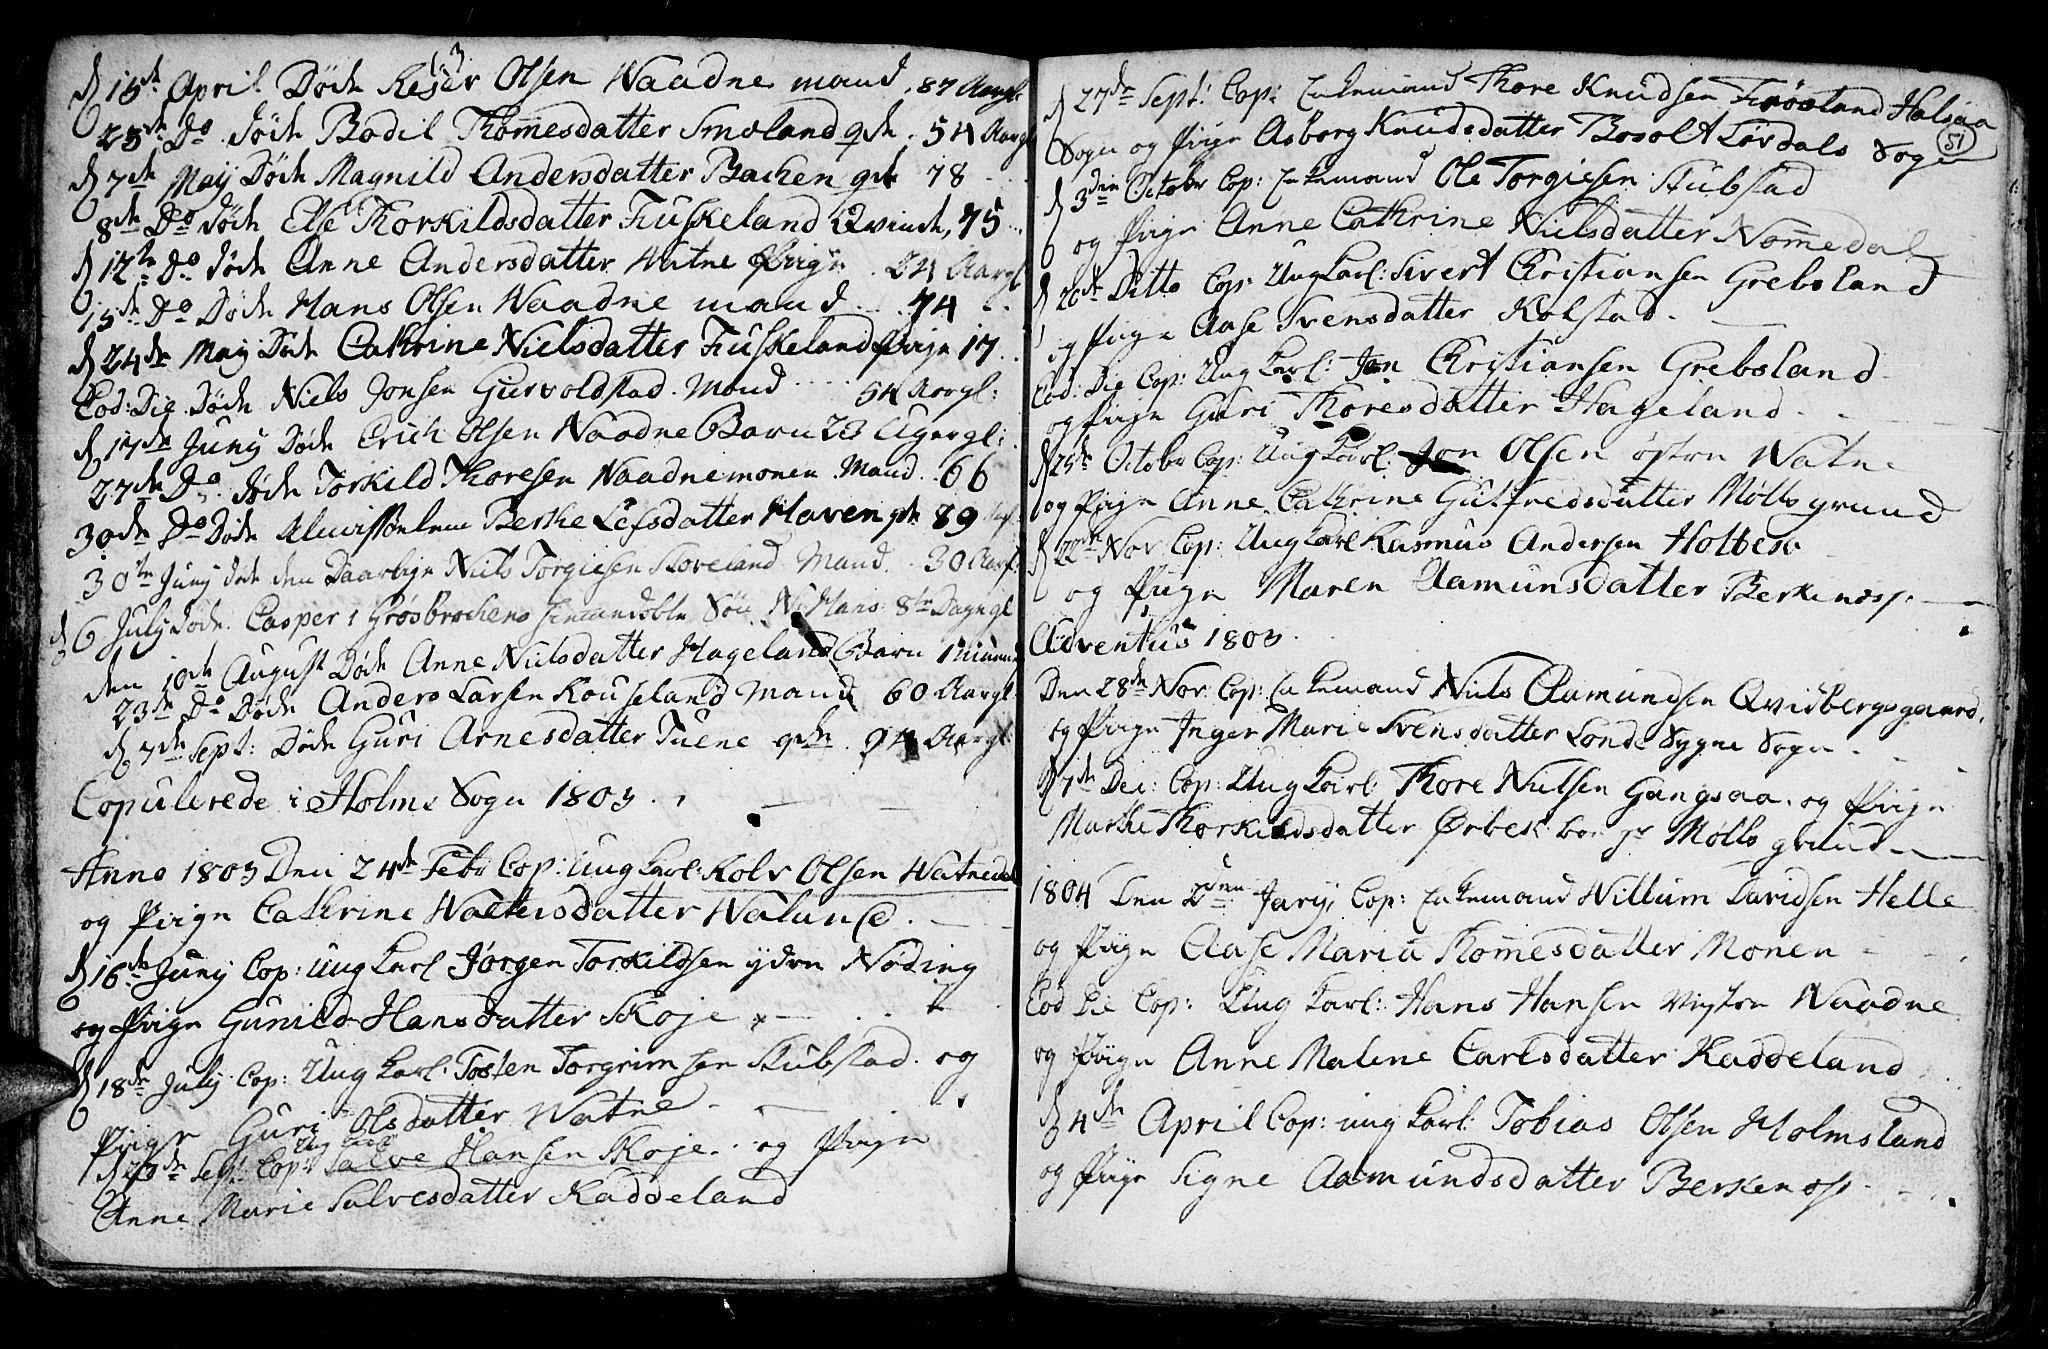 d 15de April Døde Olsen Waadne mand 87 Aargl:
23de Do Døde Bodil Thomesdatter Smeland qde 54 Aargl
d 7de May Døde Magnild Andersdatter Bachen qde 78
8de Do Døde Else Thorkildsdatter Fuskeland Qvinde, 75
d 12te Do døde Anne Andersdatter Watne Pvign 24 Aargl
15de Do Døde Hans Olsen Waadne mand 74
d 24de May Døde Cathrine Nielsdatter Fuskeland Pvign 17
Eod: Die Døde Niels Jonsen Gurvoldstad Mand 54 Aargl:
d 17de Juny Døde Erich Olsen Waadne Barn 23 Ugergl:
27de Do døde Torkild Thoresen Waadnemonen Mand 66
30de Do Døde Almisselem Berthe Lefsdatter Haven qde 89
30te Juny døde den Niels Torgiesen Storeland Mand 30 Aargl
d 6 July Døde Casper Grosbrochens Søn N: Hans 8te Dagegl
den 10de August Døde Anne Nielsdatter Hageland Barn 1 Maaned
23de Do Døde Anders Larsen Kouseland Mand 60 Aargl
d 7de Sept: Døde Guri Arnesdatter Tuene qde 94 Aargl
Copulerede i Holms Sogn 1803
Anno 1803 Den 24de Febr Cop: Ung Karl: Rolv Olsen Watnedal
og Pvign Cathrine Waltersdatter Walunsø
d 16de Juny Cop: Ung Karl Jørgen Torkildsen ydre Nøding
og Pvign Gunild Hansdatter Skoje
d 18de July Cop: Ung Karl: Tosten Torgrimsen Stubstad og
Pvign Guri Olsdatter Watne
Ung Karl
d 20de Sept: Cop: Salve Hansen Skoje og Pvign
Anne Marie Salvesdatter Kaddeland
51
d 27de Sept: Cop: Enkemand Thore Knudsen Frøsland Halsaa
Sogn og Pvign Asborg Knudsdatter Bosolt Løvdals Sogn
d 3die October Cop: Enkemand Ole Torgiesen Stubstad
og Pvign Anne Cathrine Nielsdatter Nomedal
d 20de Ditto Cop: Ung Karl: Sivert Christiansen Grebsland
og Pvign Aase Svensdatter Kolstad
Eod: Die Cop: Ung Karl: Jon Christiansen Grebsland
og Pvign Guri Thoresdatter Hageland
d 25de October Cop: Ung Karl: Jon Olsen østre Watne
og Pvign Anne Cathrine Gulfredsdatter Mølbsgrund
d 22de Nov Cop: Ung Karl Rasmus Andersen Holbek
og Pvign Maren Aamunsdatter Berkenæss
Adventus 1803
Den 28de Nov: Cop: Enkemand Niels Aamundsen Qvidbergsgaard
og Pvign Inger Marie Svensdatter Londe Søgne Sogn
d 7de Dec: Cop: Ung Karl: Thore Nielsen Gangsaa og Pvign
Marthe Thorkildsdatter Ørbek boe paa Mølbsgrund
1804 Den 2den Jany Cop: Enkemand Willum Davidsen Helle
og Pvign Aase Maria Thomesdatter Monen
Eod Die Cop: Ung Karl: Hans Hansen Vigstøe Waadne
og Pvign Anne Malene Carlsdatter Kaddeland
d 4de April Cop: Ung Karl: Tobias Olsen Holmsland
og Pvign Signe Aamundsdatter Berkenæss